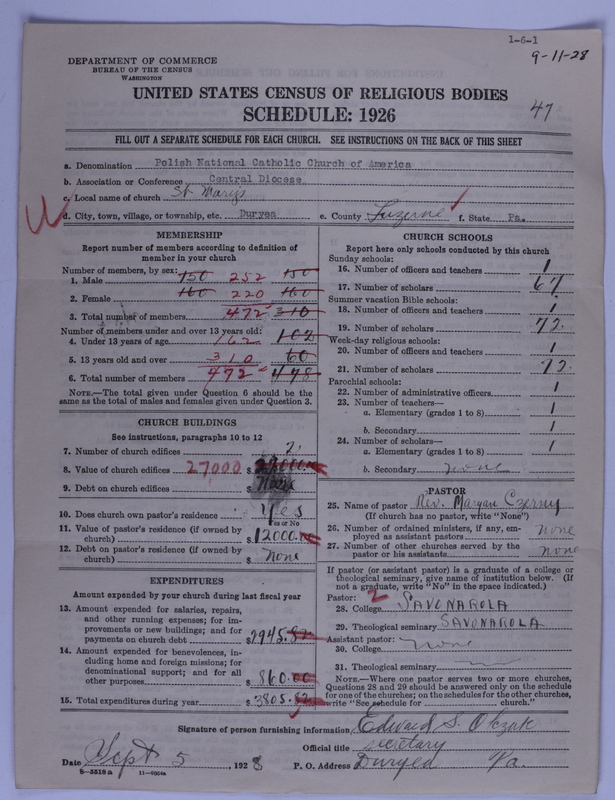 1-6-1
9-11-28
DEPARTMENT OF COMMERCE
BUREAU OF THE CENSUS
WASHINGTON
UNITED STATES CENSUS OF RELIGIOUS BODIES
SCHEDULE: 1926
47
FILL OUT A SEPARATE SCHEDULE FOR EACH CHURCH. SEE INSTRUCTIONS ON THE BACK OF THIS SHEET
a. Denomination Polish National Catholic Church of America
b. Association or Conference Central Diocese
c. Local name of church St Marys
d. City, town, village, or township, etc. Duryea e. County Luzerne f. State Pa.
MEMBERSHIP
Report number of members according to definition of
member in your church
Number of members, by sex:
1. Male 150 252 150
2. Female 160 220 160
3. Total number of members 472 310
Number of members under and over 13 years old:
4. Under 13 years of age 162 162
5. 13 years old and over 310 60
6. Total number of members 472 478
NOTE.—The total given under Question 6 should be the
same as the total of males and females given under Question 3.
CHURCH BUILDINGS
See instructions, paragraphs 10 to 12
7. Number of church edifices 2
8. Value of church edifices 27000 $
9. Debt on church edifices $ None
10. Does church own pastor's residence? Yes
Yes or No
11. Value of pastor's residence (if owned by
church) $12000.00
12. Debt on pastor's residence (if owned by
church) $ None
EXPENDITURES
Amount expended by your church during last fiscal year
13. Amount expended for salaries, repairs,
and other running expenses; for im-
provements or new buildings; and for
payments on church debt $2945.82
14. Amount expended for benevolences, in-
cluding home and foreign missions; for
denominational support; and for all
other purposes $860.00
15. Total expenditures during year $3805.82
CHURCH SCHOOLS
Report here only schools conducted by this church
Sunday schools:
16. Number of officers and teachers 1
17. Number of scholars 67
Summer vacation Bible schools:
18. Number of officers and teachers 1
19. Number of scholars 72
Week-day religious schools:
20. Number of officers and teachers 1
21. Number of scholars 72
Parochial schools:
22. Number of administrative officers 1
23. Number of teachers—
a. Elementary (grades 1 to 8) 1
b. Secondary 1
24. Number of scholars—
a. Elementary (grades 1 to 8) 1
b. Secondary none
PASTOR
25. Name of pastor Rev. Maryan Czerny
(If church has no pastor, write "None")
26. Number of ordained ministers, if any, em-
ployed as assistant pastors none
27. Number of other churches served by the
pastor or his assistants none
If pastor (or assistant pastor) is a graduate of a college or
theological seminary, give name of institution below. (If
not a graduate, write "No" in the space indicated.)
Pastor: 2
28. College SAVONAROLA
29. Theological seminary SAVONAROLA
Assistant pastor:
30. College none
31. Theological seminary
NOTE.—Where one pastor serves two or more churches,
Questions 28 and 29 should be answered only on the schedule
for one of the churches; on the schedules for the other churches,
write "See schedule for church."
Signature of person furnishing information Edward S.
Official title secretary
Date Sept 5, 1928 P. O. Address Duryea Pa.
8-5518a 11-6054a